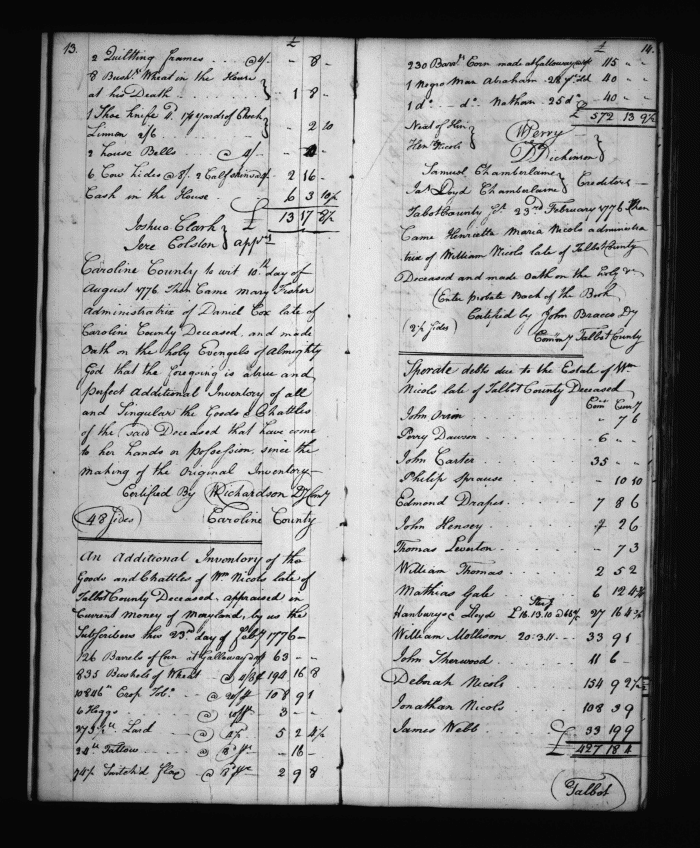 13.
£
2 Quilting frames . . . @ 4/. - 8 -
8 Bush.s Wheat in the House
at his Death . . . . } 1 8 -
1 Shoe knife 4.d 1 1/2 yards of Check
Linnen 2/6 } - 2 10
2 house Bells . . @ 2/- - 4 -
6 Cow hides @ 8/. 2 Calfskins @ 4/. 2 16 -
Cash in the House . . . . 6 3 10 1/2
£ 13 17 8 1/2
Joshua Clark
Jere Colston } App.rs
Caroline County to wit 10.th day of
August 1776. Then Came Mary Fisher
Administratrix of Daniel Cox late of
Caroline County Deceased, and made
Oath on the holy Evangels of Almighty
God that the foregoing is a true and
perfect Additional Inventory of all
and Singuler the Goods & Chattles
of the said Deceased that have come
to her hands or possession, since the
making of the Original Inventory
Certified By W Richardson D.y Com.y
(48 Sides) Caroline County
An Additional Inventory of the
Goods and Chattles of W.m Nicols late of
Talbot County Deceased, appraised in
Current Money of Maryland, by us the
Subscribers this 23.d day of Feb.y 1776—
126 Barrels of Corn at Galloway @ 10/ 63 - -
835 Bushels of Wheat . . @ 4/8 194 16 8
10846.lb Crop Tob.o . . @ 20/ 108 9 1
6 Hoggs . . . . @ 10/ 3 - -
273 1/2.lb Lard . . . @ 4 1/2 5 2 4 1/2
24.lb Tallow . . . @ 8.d - 16 -
74 1/2 Switch'd flax . . @ 8.d 2 9 8
14.
£
230 Barr.ls Corn made at Galloway @ 10/ 115 - -
1 Negro Man Abraham 28 y.rs old 40 - -
1 d.o . . d.o Nathan 25 d.o . 40 - -
£ 572 13 9 1/2
Next of Kin W Perry
Hen Nicols } Dickinson }
Samuel Chamberlaine
Ja.s Lloyd Chamberlaine } Creditors—
Talbot County Sc.t 23.rd February 1776 Then
Came Henrietta Maria Nicols administra
trix of William Nicols late of Talbot County
Deceased and made Oath on the holy &c
(Enter probate Back of the Book
Certified by John Bracco D.y
(2 1/2 sides) Com.ry Talbot County
Sperate debts due to the Estate of W.m
Nicols late of Talbot County Deceased
Com.n Curr.y
John Orrin . . . . . - 7 6
Perry Dawson . . . . 6 - -
John Carter . . . . . 35 - -
Philip Sprause . . . . - 10 10
Edmond Drapes . . . . 7 8 6
John Hensey . . . . . 7 2 6
Thomas Leverton . . . . - 7 3
William Thomas . . . . 2 5 2
Mathias Gale . . . . 6 12 4 1/2
Sterg
Hanburys & Lloyd £ 16.13.10 @ 66 2/3 27 16 4 3/4
William Mollison 20.3.11 . . 33 9 1
John Sherwood . . . . 11 6 -
Deborah Nicols . . . . 154 9 2 1/2
Jonathan Nicols . . . . 108 3 9
James Webb . . . . 33 19 9
£ 427 18 4
Talbot